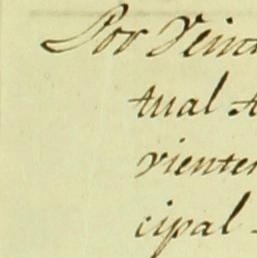 Por Veint
tual
viente
cipal